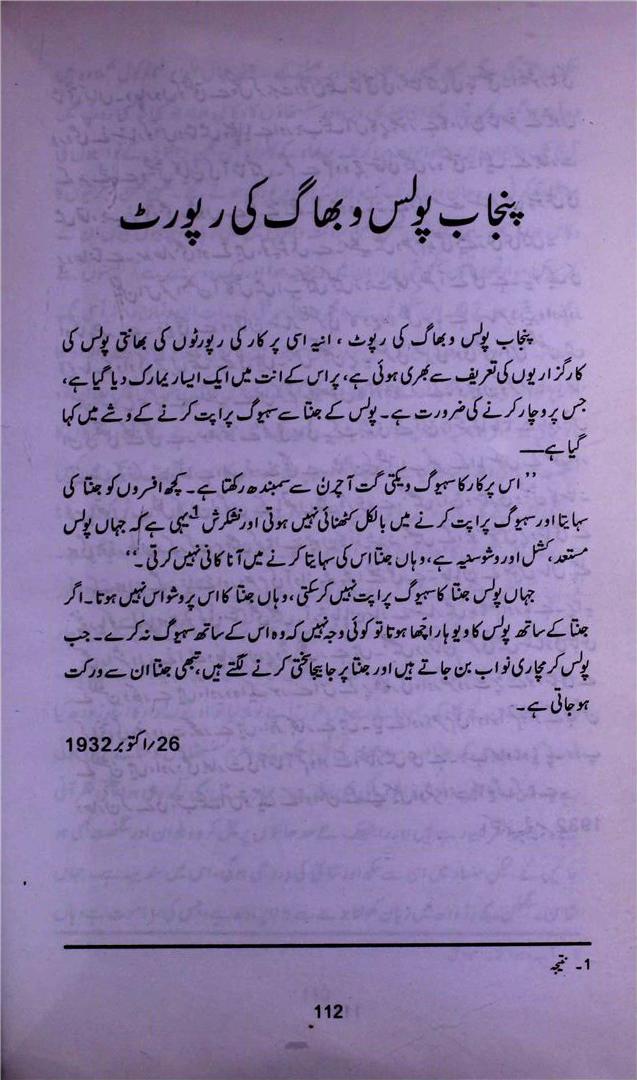 پنجاب پولس وبھاگ کی رپورٹ
پنجاب پولس وبھاگ کی رپوٹ ، انیہ اسی پرکار کی رپورٹوں کی بھانتی پولس کی
کارگزاریوں کی تعریف سے بھری ہوئی ہے، پر اس کے انت میں ایک ایسا ریمارک دیا گیا ہے،
جس پر وچار کرنے کی ضرورت ہے۔ پولس کے جنتا سے سہیوگ پراپت کرنے کے وشے میں کہا
گیا ہے—
’’ اس پرکار کا سہیوگ ویکتی گت آچرن سے سمبندھ رکھتا ہے۔ کچھ افسروں کو جنتا کی
سہایتا اور سہیوگ پراپت کرنے میں بالکل کٹھنائی نہیں ہوتی اور نشکرش 1 یہی ہے کہ جہاں پولس
مستعد، کشل اور وشوسنیہ ہے، وہاں جنتا اس کی سہایتا کرنے میں آنا کانی نہیں کرتی ۔‘‘
جہاں پولس جنتا کا سہیوگ پراپت نہیں کر سکتی، وہاں جنتا کا اس پر وشواس نہیں ہوتا۔ اگر
جنتا کے ساتھ پولس کا ویوہار اچھا ہوتا تو کوئی وجہ نہیں کہ وہ اس کے ساتھ سہیوگ نہ کرے۔ جب
پولس کرمچاری نواب بن جاتے ہیں اور جنتا پر جابیجا سختی کرنے لگتے ہیں، تبھی جنتا ان سے ورکت
ہو جاتی ہے۔
26/ اکتوبر 1932
1۔ نتیجہ
112